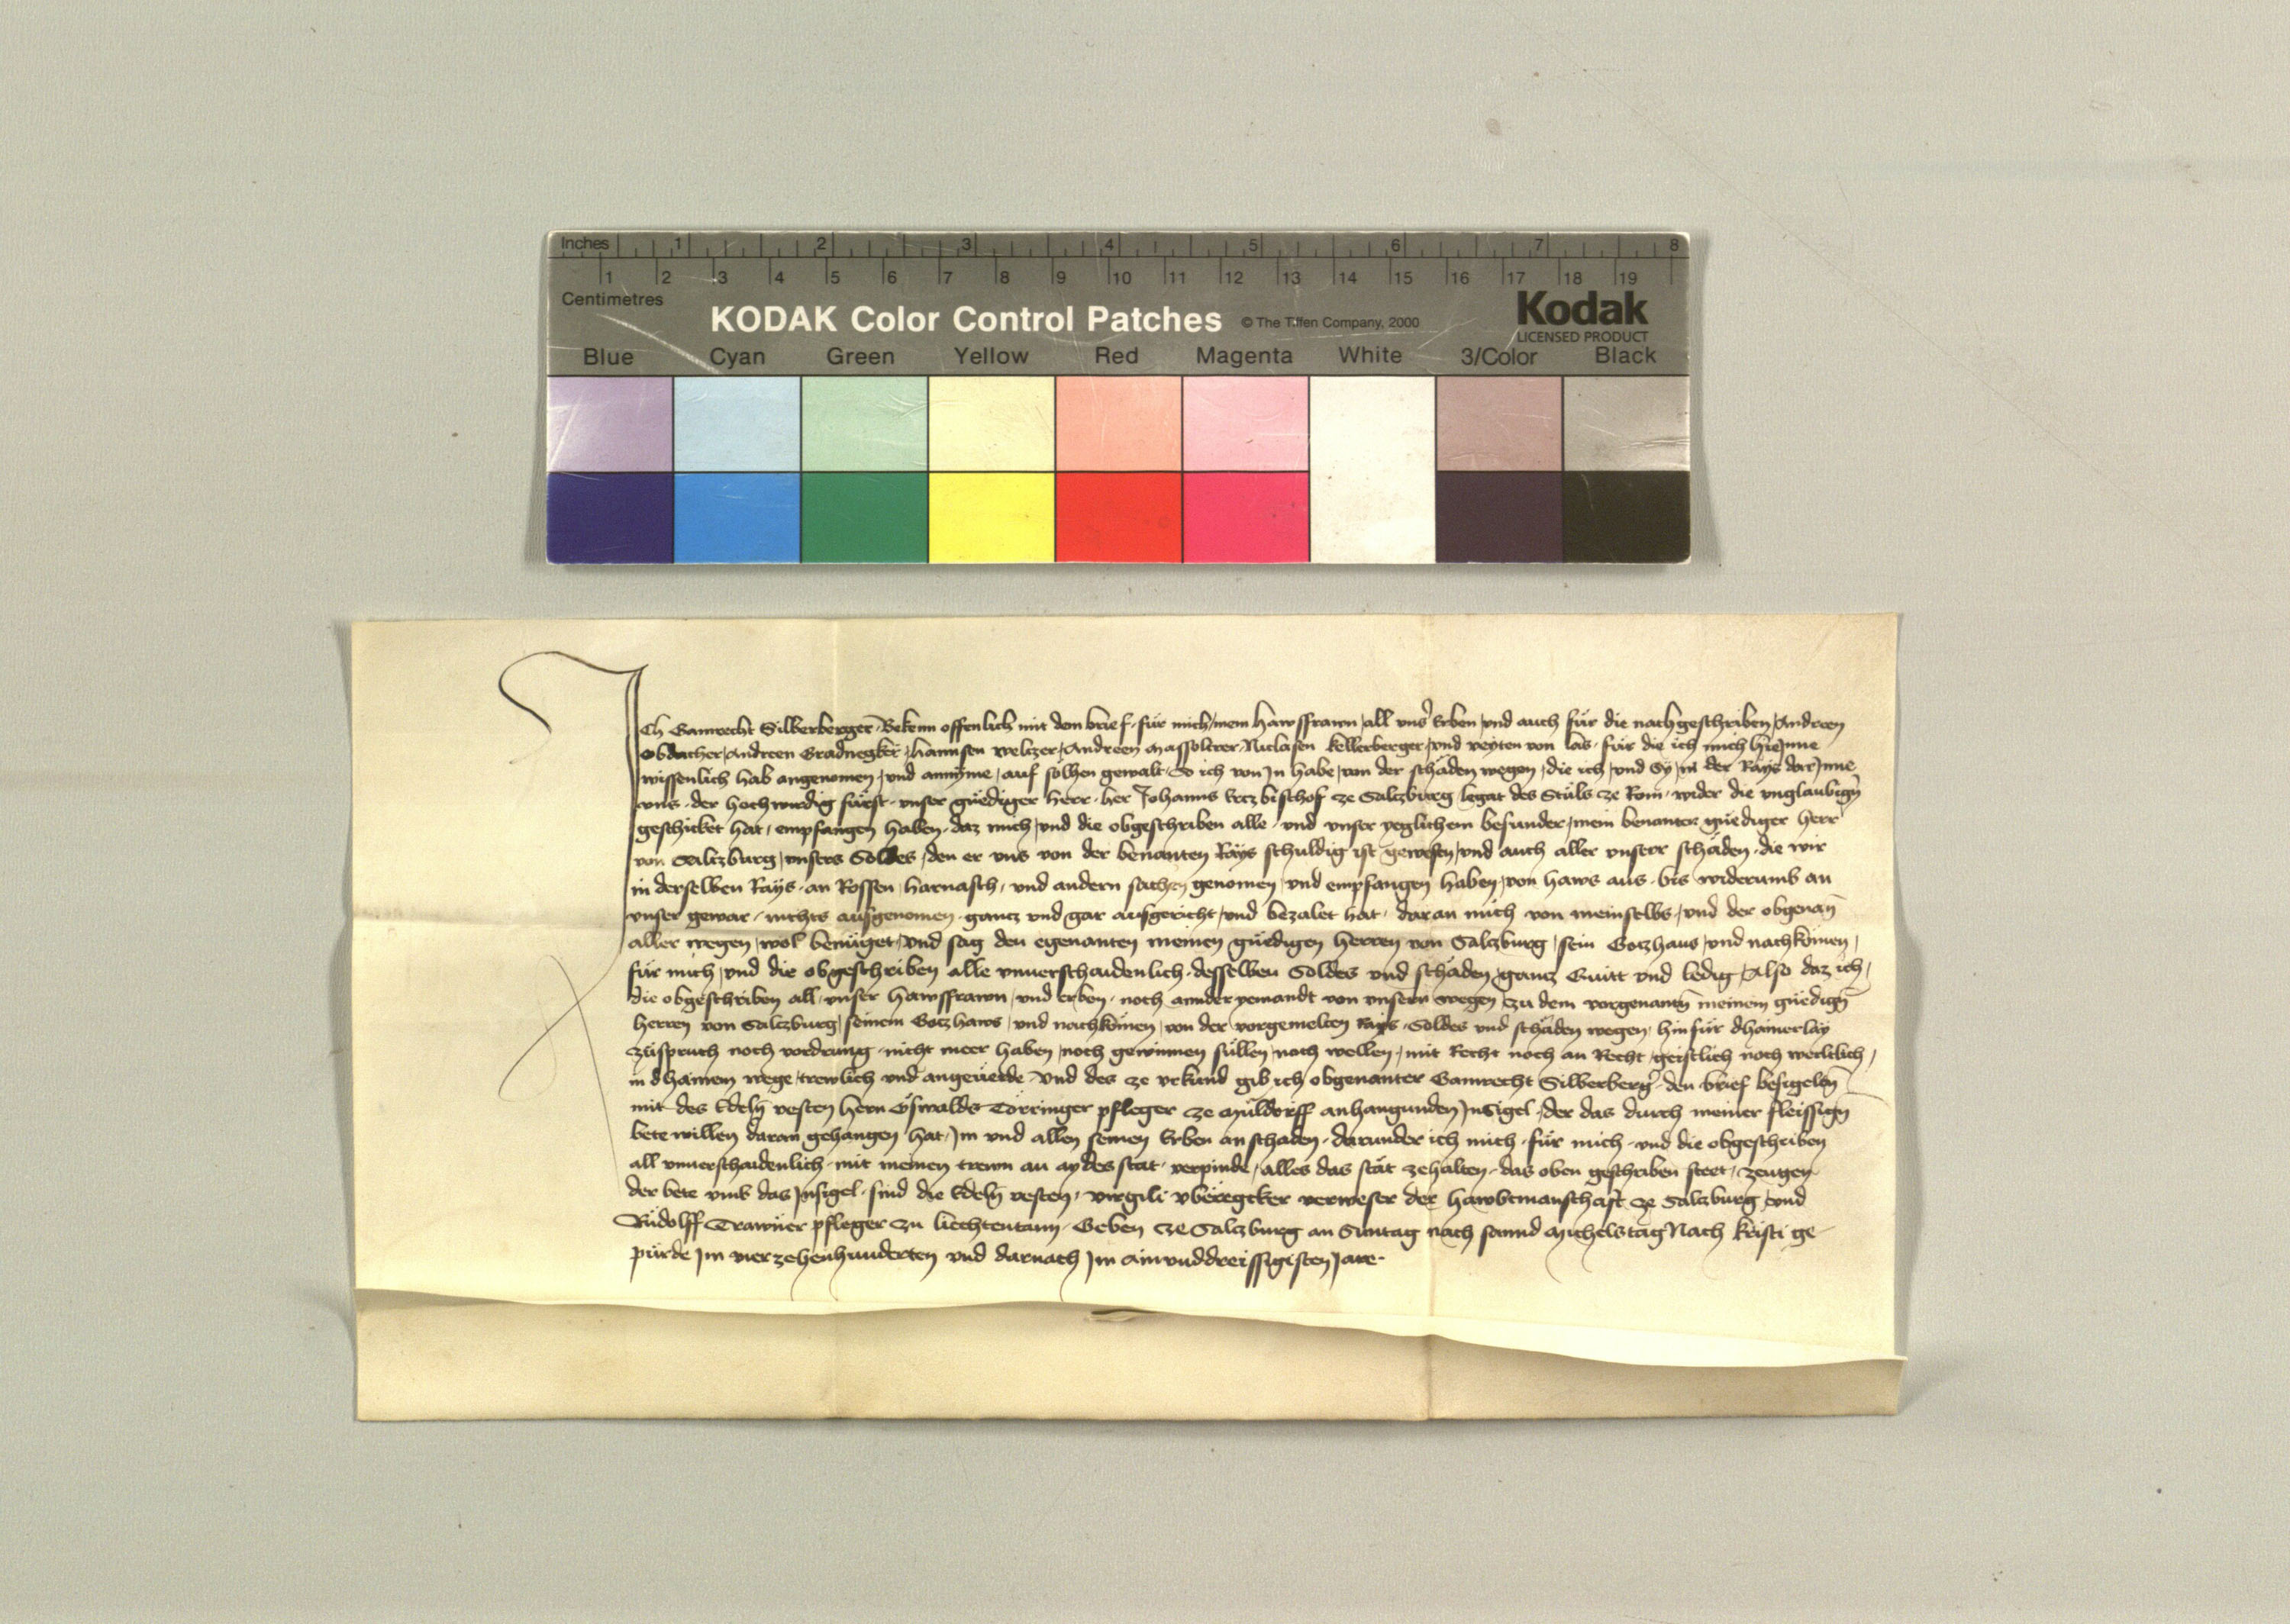 Inches 1 2 3 4 5 6 7 8
1 2 3 4 5 6 7 8 9 10 11 12 13 14 15 16 17 18 19
Centimetres
KODAK Color Control Patches © The Tiffen Company, 2000 Kodak
LICENSED PRODUCT
Blue Cyan Green Yellow Red Magenta White 3/Color Black
Ich Gamrecht Silberberger Bekenn offenlich mit dem brief, für mich, mein hawsfrawn, all uns' Erben, und auch für die nachgeschriben, Andreen
Obdacher, Andreen Gradnegker, hannsen weltzer, Andreen massoltrer, Niclasen kellerberger, und veyten von las, für die ich mich hieJnne
wissenlich hab angenomen, und annÿme, auf solhen gewalt, So ich von Jn habe, von der schäden wegen, die ich, und Sy, in der Raÿs darJnne
vns, der hochwirdig fürst, unser gnediger herr, her Johanns Ertzbischof ze Saltzburg legat des Stüls ze Rom, wider die unglaubign̄
geschicket hat, empfangen haben, daz mich, und die obgeschriben alle, und unser yeglichem besunder, mein benanter gnediger herr
von Saltzburg, unsers Soldes, den er uns von der benanten Raÿs schuldig ist gewesen, und auch aller unserr schäden, die wir
in derselben Raÿs, an Rossen, harnasch, und andern sachen genomen, und empfangen haben, von haws aus, bis widerumb an
unser gewar, nichts ausgenomen, gantz und gar ausgericht, und bezalet hat, daran mich von meinselbs, und der obgenan̄
aller wegen, wol benüget, und sag den egenanten meinen gnedigen herren von Saltzburg, sein Gotzhaus, und nachkömen,
für mich, und die obgeschriben alle unuerschaidenlich, desselben Soldes und schäden, gantz Quitt und ledig, Also daz ich,
die obgeschriben all, unser hawsfrawn, und erben, noch annder yemandt von unsern wegen zu dem vorgenantn̄ meinem gnedign̄
herren von Saltzburg, seinem Gotzhaws, und nachkömen, von der vorgemelten Raÿs, Soldes und schäden wegen, hinfür dhainerlaÿ
züspruch noch vordrung, nicht meer haben, noch gewinnen süllen, noch wellen, mit Recht noch an Recht, geistlich noch werltlich,
in dhainem wege, trewlich und angeuerde, Und des ze urkund gib ich obgenanter Gamrecht Silberberg', den brief besigeltn̄
mit des Edeln̄ vesten hern Oswalds Törringer pfleger ze Müldorff anhangunden Jnsigel, der das durch meiner fleissign̄
bete willen daran gehangen hat, Jm und allen seinen Erben an schaden, darunder ich mich, für mich, und die obgeschriben
all unuerschaidenlich, mit meinen trewn an aydes stat, verpinde, alles das stät zehalten, das oben geschriben steet, Zeugen
der bete umb das Jnsigel, sind die Edeln̄ vesten, virgili vberegker verweser der hawbtmanschaft ze Salzburg, und
Rüdolff Trawner pfleger zu liechtentann, Geben ze Saltzburg an Suntag nach sannd michelstag Nach kristi ge
pürde Jm vierzehenhunderten und darnach Jm ainunddreissigisten Jare.